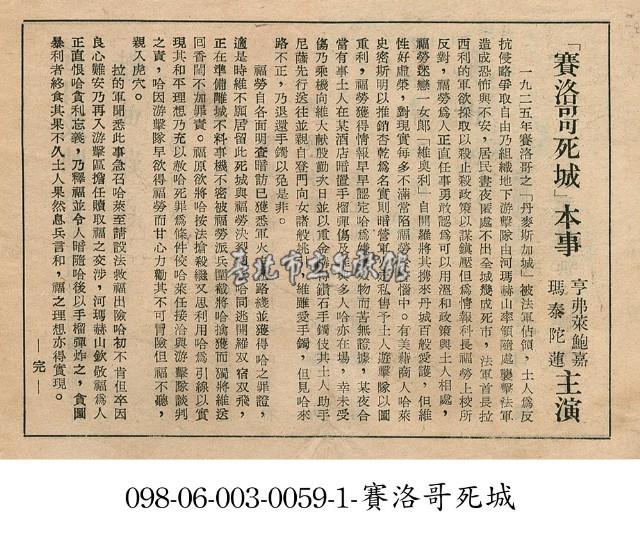 「賽洛哥死城」本事
亨弗萊鮑嘉
瑪泰陀蓮
主演
一九二五年賽洛哥之「丹麥斯加城」被法軍佔領，土人為反
抗侵略爭取自由乃組織地下游擊隊由河瑪赫山率領隨處襲擊法軍
造成恐怖與不安，居民晝夜匿處不出全城幾成死市，法軍首長拉
西利的軍欲採取以殺止殺政策以謀鎮壓但為情報科長福勞上校所
反對，福勞為人正直任事勇敢認為可以用溫和政策與土人相處，
福勞迷戀一女郎「維奧利」自開羅將其携來丹城百般愛護，但維
性好虛榮，對現實每多不滿常陷福勞於苦惱中。有美藉商人哈萊
史密斯明以推銷杏乾為名實則暗營軍火私售予土人遊擊隊以圖
重利，福勞獲得情報早早認定哈為嫌疑人物而苦無證據，某夜合
當有事土人在某酒店暗置手榴彈傷及法人多人哈亦在場，幸未受
傷乃乘機向維大献殷勤次日並以重金購得鑽石手鐲伎其土人助手
尼薩先行送往並親自登門向女諸般挑逗，維雖愛手鐲，但見哈來
路不正，乃退還手鐲以免是非。
福勞自各面明查暗訪已獲悉軍火走私路綫並獲得哈之罪證，
適是時維不願居留此死城與福勞決裂擬與哈同逃開羅双宿双飛，
正在準備離城不料事機不密被福勞派兵圍截將哈擒獲而獨將維送
回香閨不加罪責。福原欲將哈按法搶殺繼又思利用哈為引線以實
現其和平理想乃充以赦哈死罪為條件佼哈萊任接洽與游擊隊談判
之責，哈因游擊隊早欲得福勞而甘心力勸其不可冒險但福不聽，
親入虎穴。
拉的軍聞悉此事急召哈萊至請設法救福出險哈初不肯但卒因
良心難安乃再入游擊區擔任贖取福之交涉，河瑪赫山欽敬福為人
正直恨哈貪利忘義，乃釋福並令人暗隨哈後以手榴彈炸之，貪圖
暴利者終食其果不久土人果然息兵言和，福之理想亦得實現。
——完——
臺北市立文獻館
098-06-003-0059-1-賽洛哥死城